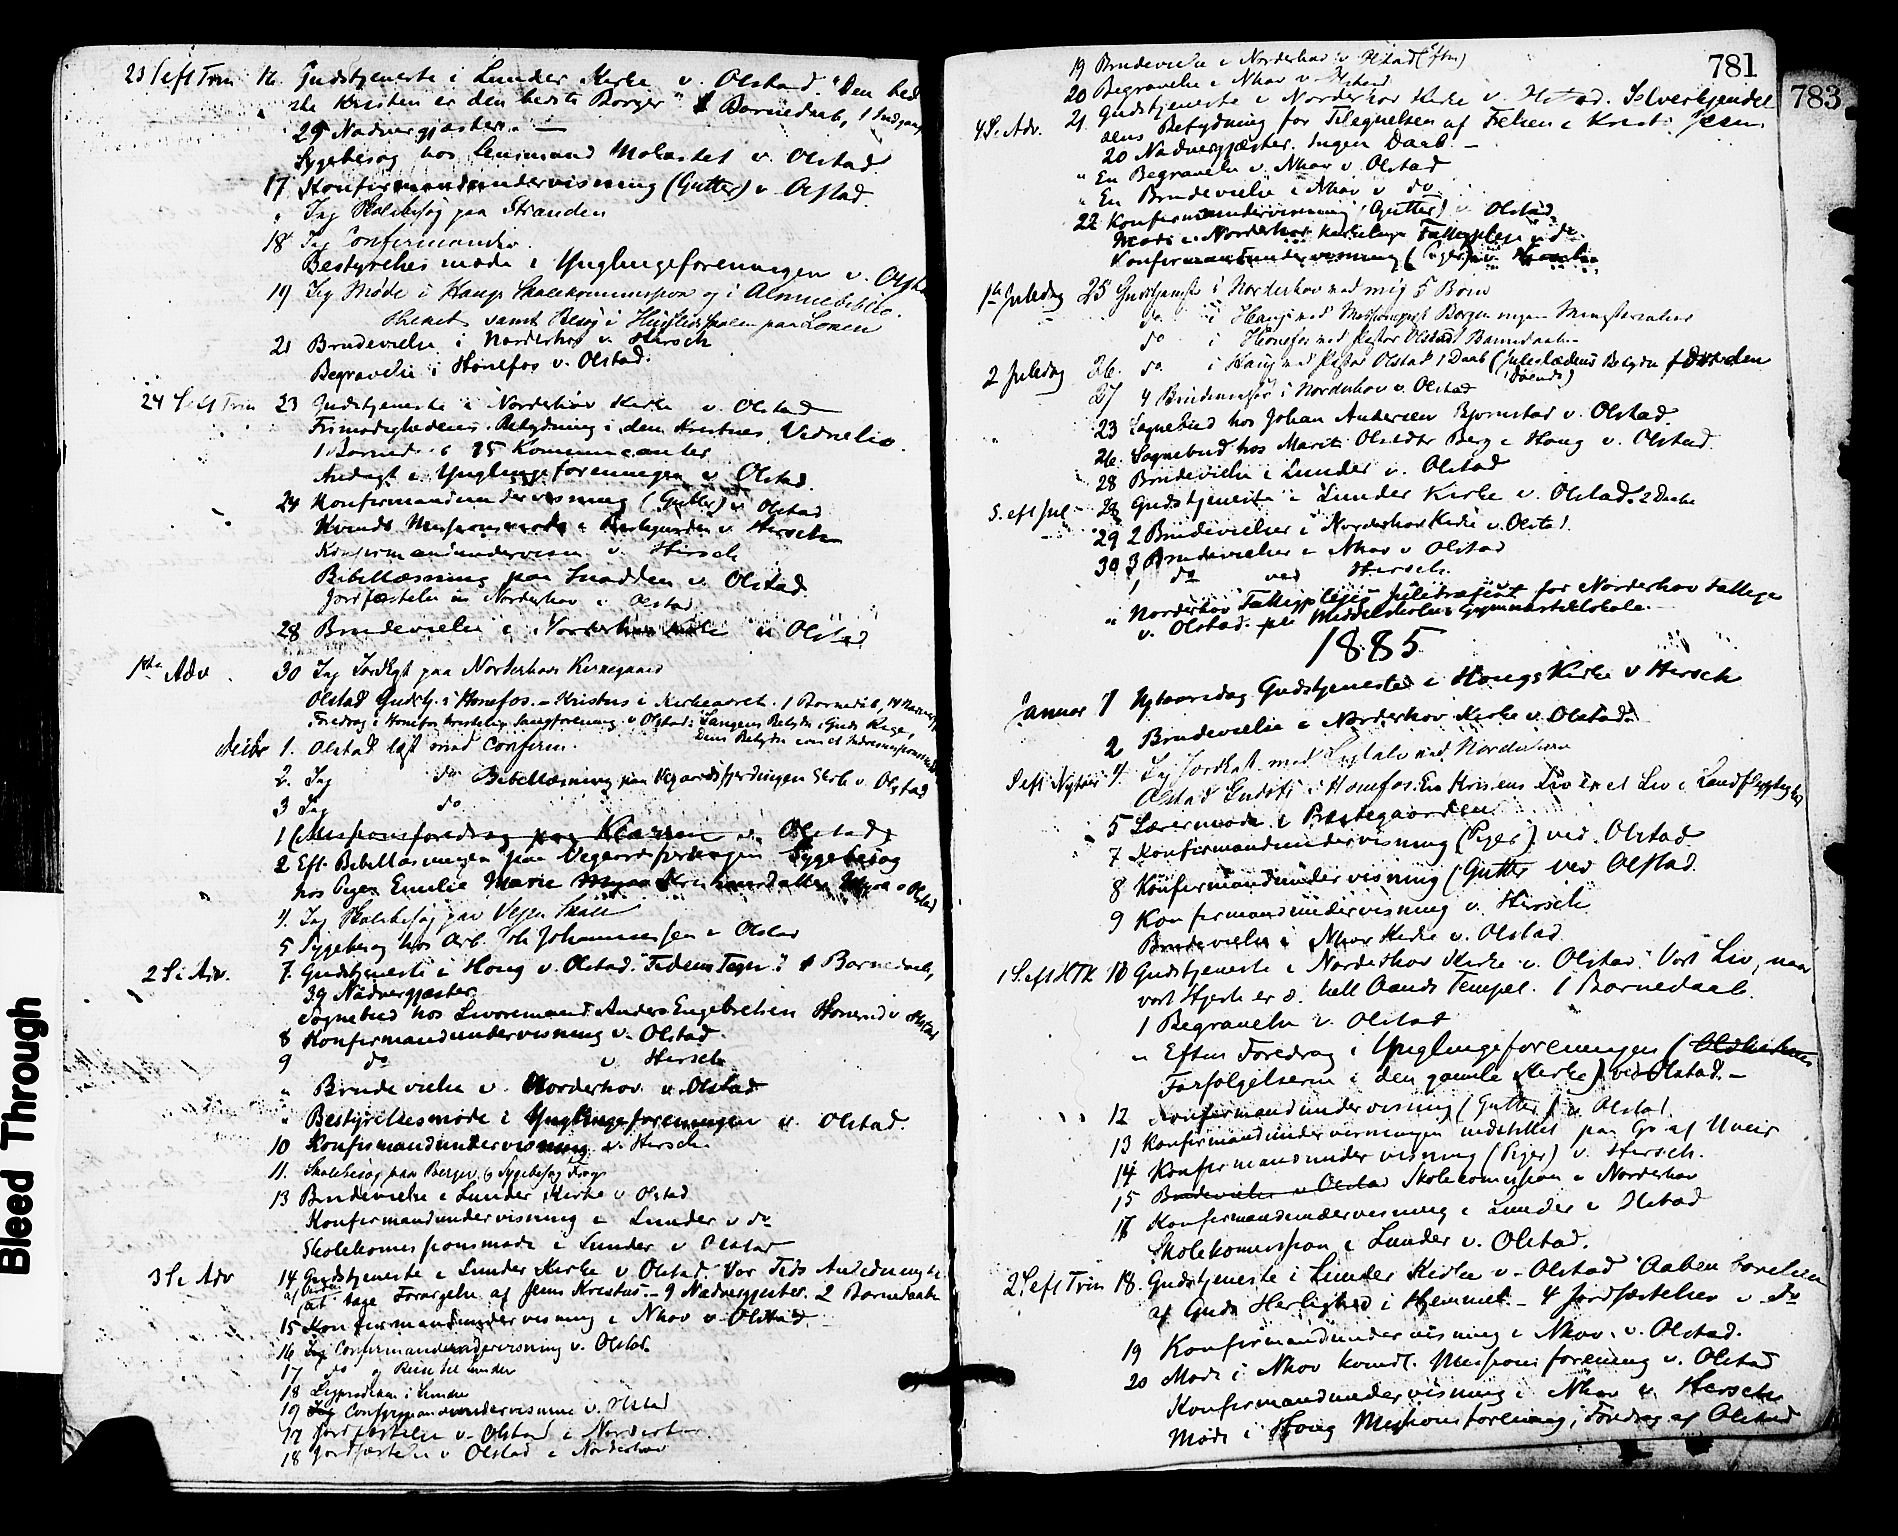 23 S eft Trin 16. Gudstjeneste i Lunder Kirke v. Olstad. "Den bed
ste Kristen er den bedste Borger" 1 Barnedaab, 1 Indgang
29 Nadvergjæster. —
Sygebesøg hos Lensmand Molastet v. Olstad.
17 Konfirmandundervisning (Gutter) v Olstad.
" Jeg Skolebesøg paa Stranden
18 Jeg Confirmander.
Bestyrelsesmøde i Ynglingeforeningen v. Olstad
19 Jeg Møde i Haugs Skolekommission og i Almuebiblio.
theket samt Besøg i Husflidsskolen paa Lonen
21 Brudevielse i Norderhov v. Hersch
Begravelse i Hønefos v. Olstad.
24 S eft Trin 23 Gudstjeneste i Norderhov Kirke v. Olstad
Frimodighedens Betydning i den Kristnes Vidnesliv.
1 Barned. 6 25 Kommunicanter
Andagt i Ynglingeforeningen v Olstad.
24 Konfirmandundervisning (Gutter) v Olstad
Kvindl. Missionsmøde i Prestegaarden v. Hersch
Konfirmandundervisn v. Hersch
Bibellæsning paa Snadden v. Olstad.
Jordfæstelse i Norderhov v. Olstad
28 Brudevielse i Norderhov Kirke v Olstad
1ste Adv. 30 Jeg Jordkast paa Norderhovs Kirkegaard
Olstad Gudstj. i Hønefos. – Kristus i Kirkeaaret. 1 Barnedaab, 14 Nadverg.
Foredrag i Hønefos kristelige Sangforening v Olstad: Sangens Betydn. i Guds Rige,
Dens Betydn. som et Indremissions
Decbr 1. Olstad læst med Confirm.
2. Jeg do Bibellæsning paa Vegaardsfjerdingen Skole v. Olstad
3 Jeg do
1 (Missionsforedrag paa Klearen v. Olstad)
2 Eft. Bibellæsningen paa Vegaardsfjerdingen Sygebesøg
hos Pigen Emilie Marie Kristiansdatter v Olstad
4. Jeg Skolebesøg paa Vegen Skole
5 Sygebesøg hos Arb. Joh Johannessen v Olstad
2 S i Adv. 7. Gudstjeneste i Houg v. Olstad. "Tidens Tegn". 1 Barnedaab,
39 Nadvergjæster
Sognebud hos Livoremand Anders Engebretsen Honerud v Olstad
8 Konfirmandundervisning v. Olstad.
9 do v Hersch
" Brudevielse v. Norderhov v Olstad
" Bestyrelsesmøde i Ynglingeforeningen v. Olstad.
10 Konfirmandundervisning v. Hersch.
11. Skolebesøg paa Berger, og Sygebesøg Frog
13 Brudevielse i Lunder Kirke v Olstad
Konfirmandundervisning i Lunder v do
Skolekomissionsmøde i Lunder v Olstad
3 S i Adv 14 Gudstjeneste i Lunder Kirke v Olstad. Vor Tids Anledninger til
at tage Forargelse af Jesus Kristus. – 9 Nadvergjæster. 2 Barnedaabe
15 Konfirmandundervisning i Nhov v Olstad.
16 Jeg Confirmandundervisning v. Olstad.
17 do og Reise til Lunder
18 Ligprædiken i Lunder
19 Jeg Confirmandundervisning v. Olstad
17 Jordfæstelse v. Olstad i Norderhov.
18 Jordfæstelse v Olstad i Norderhov
781
783
19 Brudevielse i Norderhov v Olstad (Eftm)
20 Begravelse i Nhov v. Olstad
4 S. i Adv. 21. Gudstjeneste i Norderhov Kirke v. Olstad. Selverkjendel
sens Betydning for Tilegnelsen af Frelsen i Kristo Jesu.
20 Nadvergjæster. Ingen Daab. –
" En Begravelse v. Nhov v Olstad
" En Brudevielse i Nhov v do
22 Konfirmandundervisning (Gutter) v Olstad.
Møde i Norderhov kirkelige Fattigpleje v do
Konfirmandundervisning (Piger) v. Hersch
1ste Juledag 25 Gudstjeneste i Norderhov ved mig 5 Børn
do i Haug ved Missionsprest Borgen ingen Ministerialier
do i Hønefos ved Pastor Olstad 1 Barnedaab
2 Juledag 26. do i Haug ved Pastor Olstad 1 Daab (Juleglædens Betydn for den
Døende)
27 4 Brudevielser i Norderhov v. Olstad
" 23 Sognebud hos Johan Andersen Bjørnstad v. Olstad.
26. Sognebud hos Marit Olsdtr Berg i Houg v. Olstad.
28 Brudevielse i Lunder v. Olstad
S. eft Jul – 28 Gudstjeneste i Lunder Kirke v. Olstad. 2 Daabe
29 2 Brudevielser i Norderhov Kirke v. Olstad.
30 3 Brudevielser i Nhov v Olstad
1 do ved Hersch.
" Norderhov Fattigplejes Juletræfest for Norderhov Fattige
v. Olstad. paa Middelskolens Gymnastiklokale. —
1885
Januar 1 Nytaarsdag Gudstjeneste i Hougs Kirke v Hersch
2 Brudevielse i Norderhov Kirke v. Olstad.
S eft Nytaar 4. Jeg Jordkast med Ligtale ved Norderhov
Olstad Gudstj. i Hønefos. En Kristens Liv er et Liv i Landflygtighed
5 Lærermøde i Prestegaarden
7 Konfirmandundervisning (Piger) ved Olstad
8 Konfirmandundervisning (Gutter ved Olstad.
9 Konfirmandundervisning v. Hersch
Brudevielse i Nhov Kirke v. Olstad.
1 S. eft HTK 10 Gudstjeneste i Norderhov Kirke v. Olstad. "Vort Liv, naar
vort Hjerte er d. hell Aands Tempel. 1 Barnedaab.
1 Begravelse v. Olstad
" Efterm Foredrag i Ynglingeforeningen (Oldkirkens
Forfølgelserne i den gamle Kirke) ved Olstad. –
12 Konfirmandundervisning (Gutter) v Olstad.
13 Konfirmandundervisningen indstillet paa Gr af Uveir
14 Konfirmandundervisning (Piger) v. Hersch.
15 Brudevielse v Olstad Skolekomission i Norderhov
16 Konfirmandundervisning i Lunder v Olstad
Skolekomission i Lunder v. Olstad.
2 S eft Trin 18. Gudstjeneste i Lunder Kirke v. Olstad "Aabenbarelsen
af Guds Herlighed i Hjemmet – 4 Jordfæstelser v. do
19 Konfirmandundervisning i Nhov. v. Olstad.
20 Møde i Nhov kvindl. Missionsforening v. Olstad
Konfirmandundervisning i Nhov v Hersch
Møde i Houg Missionsforening, Foredrag af Olstad
Bleed Through